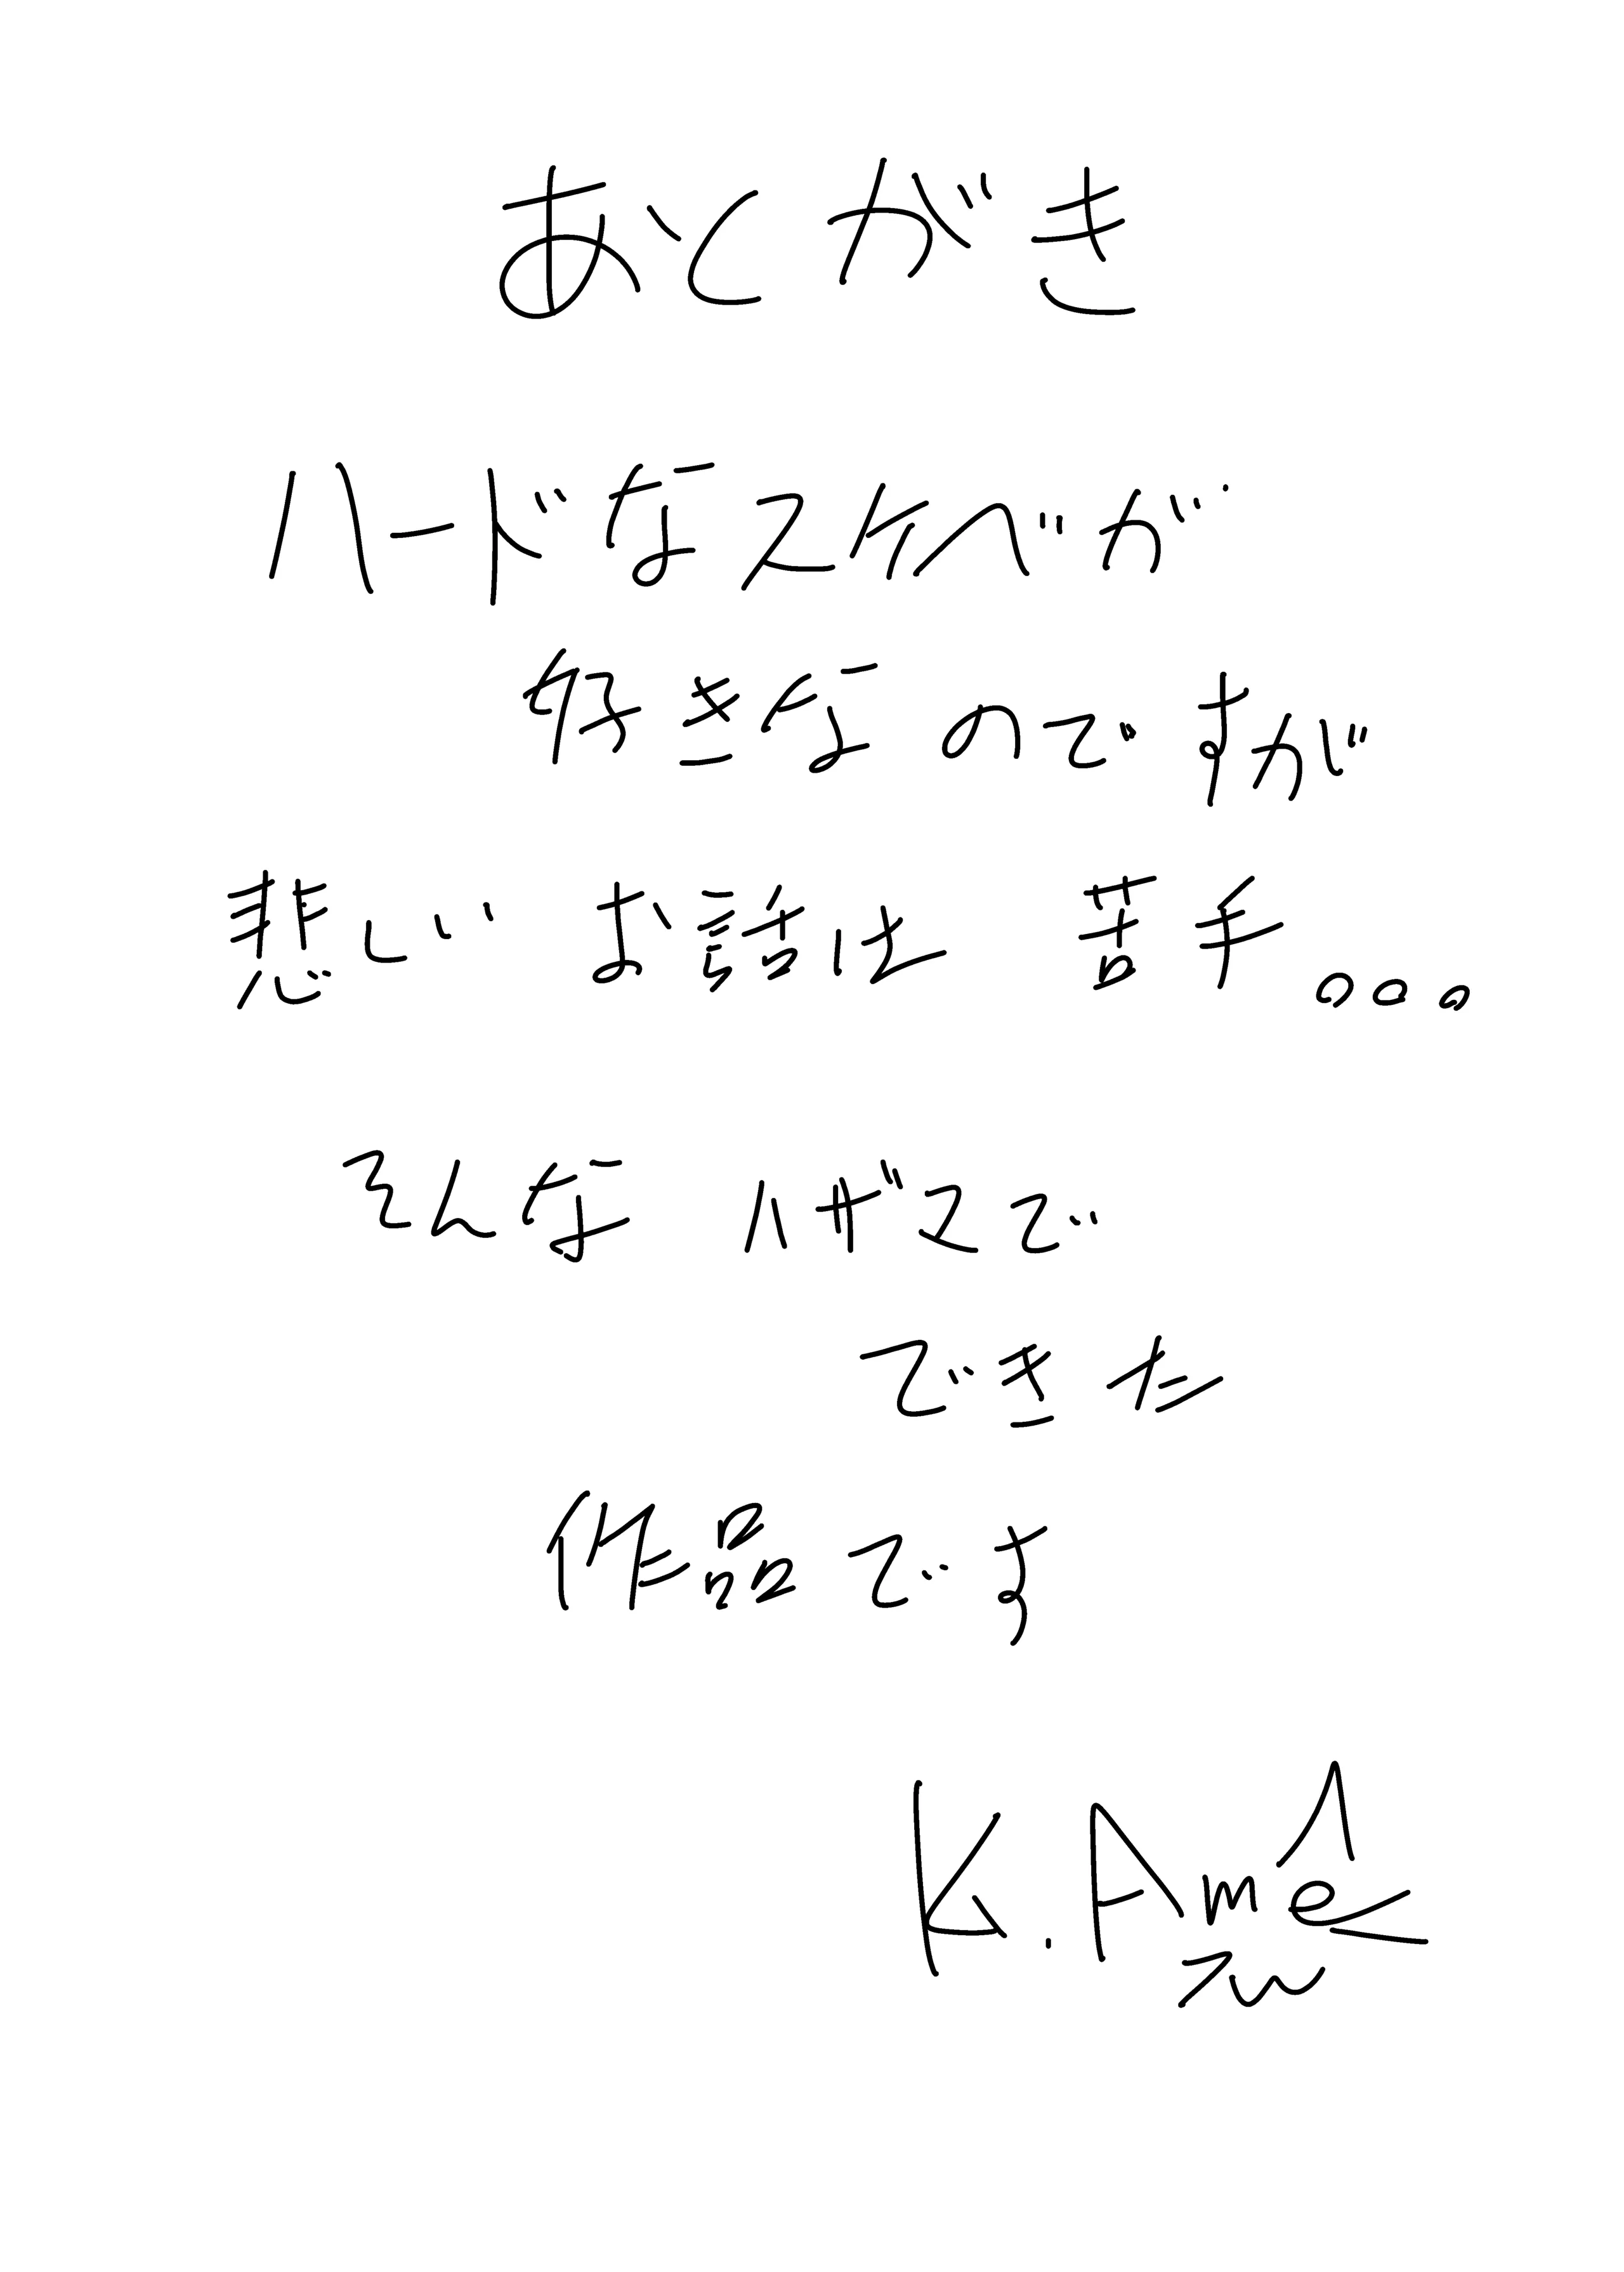 あとがき
ハードなスケベが
好きなのですが
悲しい お話は 苦手。。。
そんな ハザマで
できた
作品です
K.Amé